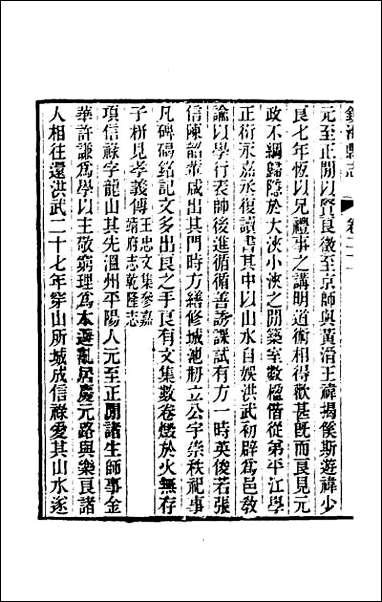 鎮海縣志 卷二十
元至正閒以賢良徵至京師與黃溍王褘揭傒斯遊褘少
良七年恆以兄禮事之講明道術相得歡甚旣而良見元
政不綱歸隱於大浹小浹之閒築室數楹偕從弟平江學
正衍永嘉丞復讀書其中以山水自娛洪武初辟爲邑敎
諭以學行表師後進循循善誘課試有方一時英俊若張
信陳韶輩咸出其門時方繕修城池刱立公宇崇秩祀事
凡碑碣銘記文多出良之手良有文集數卷燬於火無存
子栟見孝義傳王忠文集參嘉靖府志乾隆志
項信祿字龍山其先溫州平陽人元至正閒諸生師事金
華許謙爲學以主敬窮理爲本避亂居慶元路與樂良諸
人相往還洪武二十七年穿山所城成信祿愛其山水遂